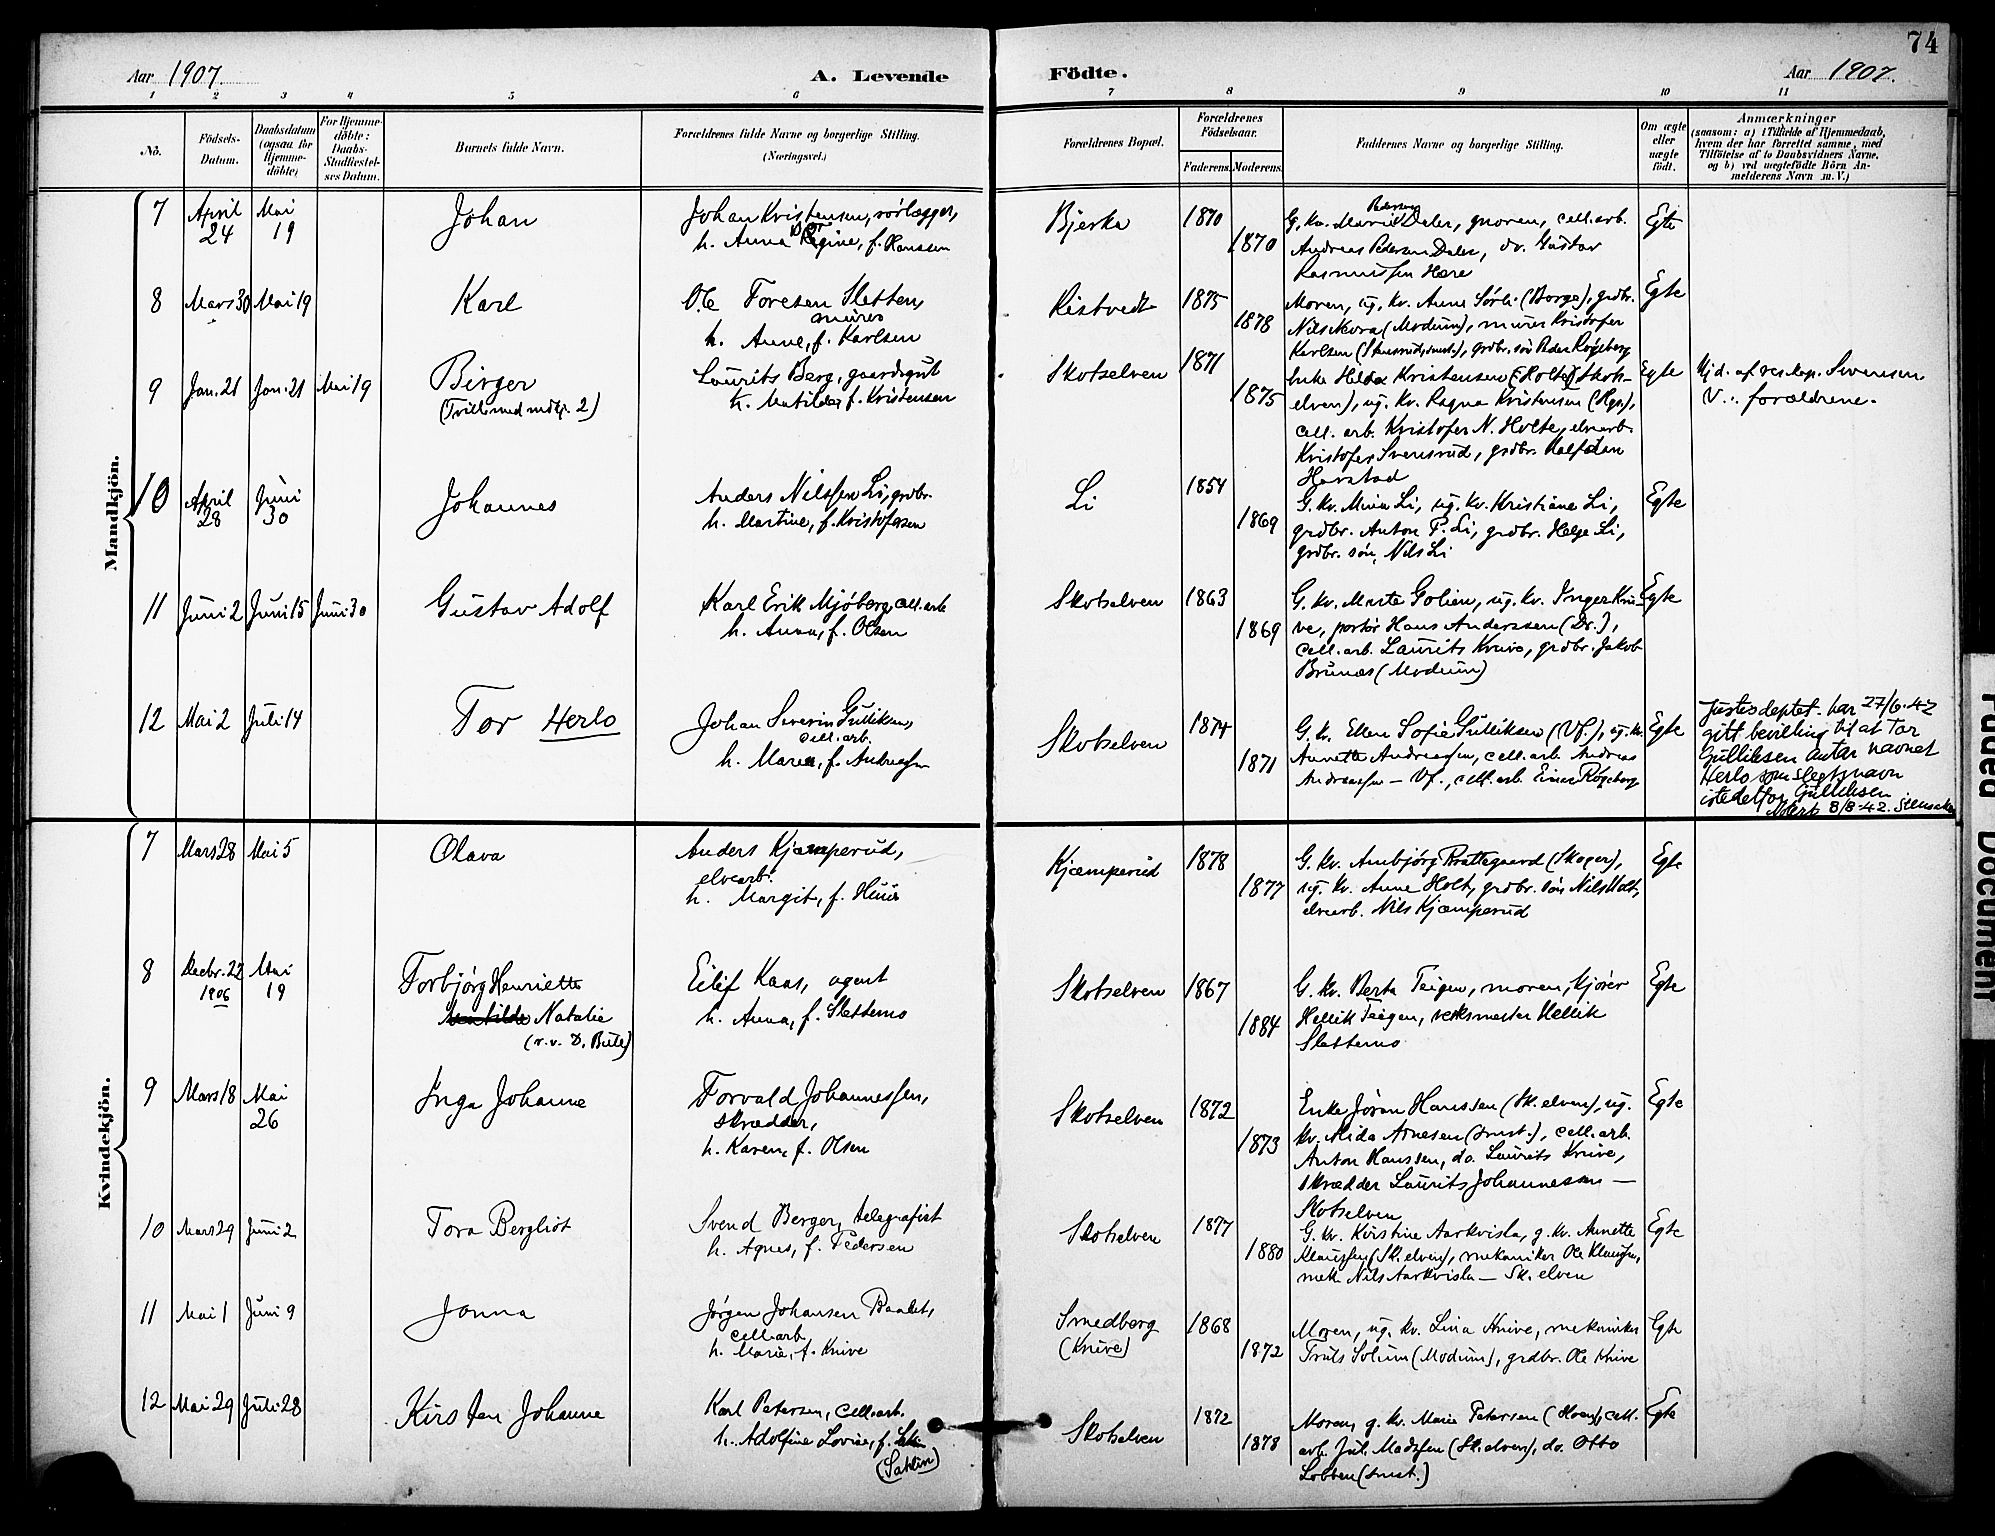 74
Aar 1907. A. Levende Födte. Aar 1907.
1 2 3 4 5 6 7 8 9 10 11
No. Födsels-Datum. Daabsdatum (ogsaa for Hjemme-döbte) For Hjemme-döbte: Daabs-Stadfæstel-ses Datum. Barnets fulde Navn. Forældrenes fulde Navne og borgerlige Stilling. (Næringsvei.) Forældrenes Bopæl. Forældrenes Födselsaar. Faderens. Moderens. Faddernes Navne og borgerlige Stilling. Om ægte eller uægte födt. Anmærkninger
(saasom: a) i Tilfælde af Hjemmedaab, hvem der har forrettet samme, med Tilföielse af to Daabsvidners Navne, og b) ved uægtefödte Börn An-melderens Navn m. V.)
Mandkjön.
7 April 24 Mai 19 Johan Johan Kristensen, rörlægger,
h. Anna Regine, f. Hanssen
Bjerka 1870 1870 G. kv. Marie Pedersen Daler, moren, cell. arb.
Andreas Pedersen Daler, do. Gustav
Rasmussen Høre
Egte
8 Mars 30 Mai 19 Karl Ole Toresen Sletten,
murer
h. Anne, f. Karlsen
Ristvedt 1875 1878 Moren, ug. kv. Anne Sørli (Borge), grdbr.
Nils Skora (Modum), murer Kristofer
Karlsen (Stensrud, smst.), grdbr. søn Peder Røgeberg
Egte
9 Jan. 21 Jan. 21 Mai 19 Birger
(Tvill. med mdkj. 2)
Laurits Berg, gaardsgut
h. Matilde, f. Kristensen
Skotselven 1871 1875 Enke Helda Kristensen (Holte, Skots-
elven), ug. kv. Ragna Kristensen (Hgs.),
cell. arb. Kristofer N. Holte, elvearb.
Kristofer Svensrud, grdbr. Halfdan
Harstad
Egte Hjd. af res. kap. Svensen
V.: forældrene.
10 April 28 Juni 30 Johannes Anders Nilssen Li, grdbr.
h. Martine, f. Kristofersen
Li 1854 1869 G. kv. Mina Li, ug. kv. Kristiane Li,
grdbr. Anton P. Li, grdbr. Helge Li,
grdbr. søn, Nils Li
Egte
11 Juni 2 Juni 15 Juni 30 Gustav Adolf Karl Erik Mjöberg, cell. arb.
h. Anna, f. Olsen
Skotselven 1863 1869 G. kv. Marte Golien, ug. kv. Inger Kni-
ve, portør Hans Anderssen (Dr.),
cell. arb. Laurits Knive, grdbr. Jakob
Brunæs (Modum)
Egte
12 Mai 2 Juli 14 Tor Herlo Johan Severin Gulliksen,
cell. arb.
h. Maren, f. Andreassen
Skotselven 1874 1871 G. kv. Ellen Sofie Gulliksen (Vf.), ug. kv.
Annette Andreassen, cell. arb. Andreas
Andreassen – Vf., cell. arb. Einar Røgeberg
Egte Justisdeptet. har 27/6-42
gitt bevilling til at Tor
Gulliksen antar navnet
Herlo som slegtsnavn
istedetfor Gulliksen
8/8-42.
Kvindekjön.
7 Mars 28 Mai 5 Olava Anders Kjæmperud,
elvearb.
h. Margit, f. Huus
Kjæmperud 1878 1877 G. kv. Ambjörg Brattegaard (Skoger),
ug. kv. Anne Holt, grdbr. søn Nils Holt,
elvearb. Nils Kjæmperud
Egte
8 Decbr. 22 1906 Mai 19 Torbjörg Henriette
Matilde Natalie
(r. v. D. Butl)
Eilif Kaas, agent
h. Anna, f. Slettemo
Skotselven 1867 1884 G. kv. Berta Teigen, moren, kjører
Hellik Teigen, verksmester Hellik
Slettemo
Egte
9 Mars 18 Mai 26 Inga Johanne Torvald Johannessen,
skrædder,
h. Karen, f. Olsen
Skotselven 1872 1873 Enke Jøran Hanssen (Sk. elven), ug.
kv. Alida Arnesen (smst.), cell. arb.
Anton Hanssen, do. Laurits Knive,
skrædder Laurits Johannessen –
Skotselven
Egte
10 Mars 29 Juni 2 Tora Bergliot Svend Berger, telegrafist
h. Agnes, f. Pedersen
Skotselven 1877 1880 G. kv. Kirstine Aarkvisla, g. kv. Annette
Klaussen (Sk. elven), mekaniker Ole Klaussen,
mek. Nils Aarkvisla – Sk. elven
Egte
11 Mai 1 Juni 9 Jonna Jørgen Johansen Baalet,
cell. arb.
h. Marie, f. Knive
Smedberg
(Knive)
1868 1872 Moren, ug. kv. Lina Knive, mekaniker
Truls Solum (Modum), grdbr. Ole Knive
Egte
12 Mai 29 Juli 28 Kirsten Johanne Karl Petersen, cell. arb.
h. Adolfine Lovise, f.
(Sahlin)
Skotselven 1872 1878 Moren, g. kv. Marie Petersen (Hoen), cell.
arb. Jul. Madssen (Sk. elven), do. Otto
Lobben (smst.)
Egte
Faded Document